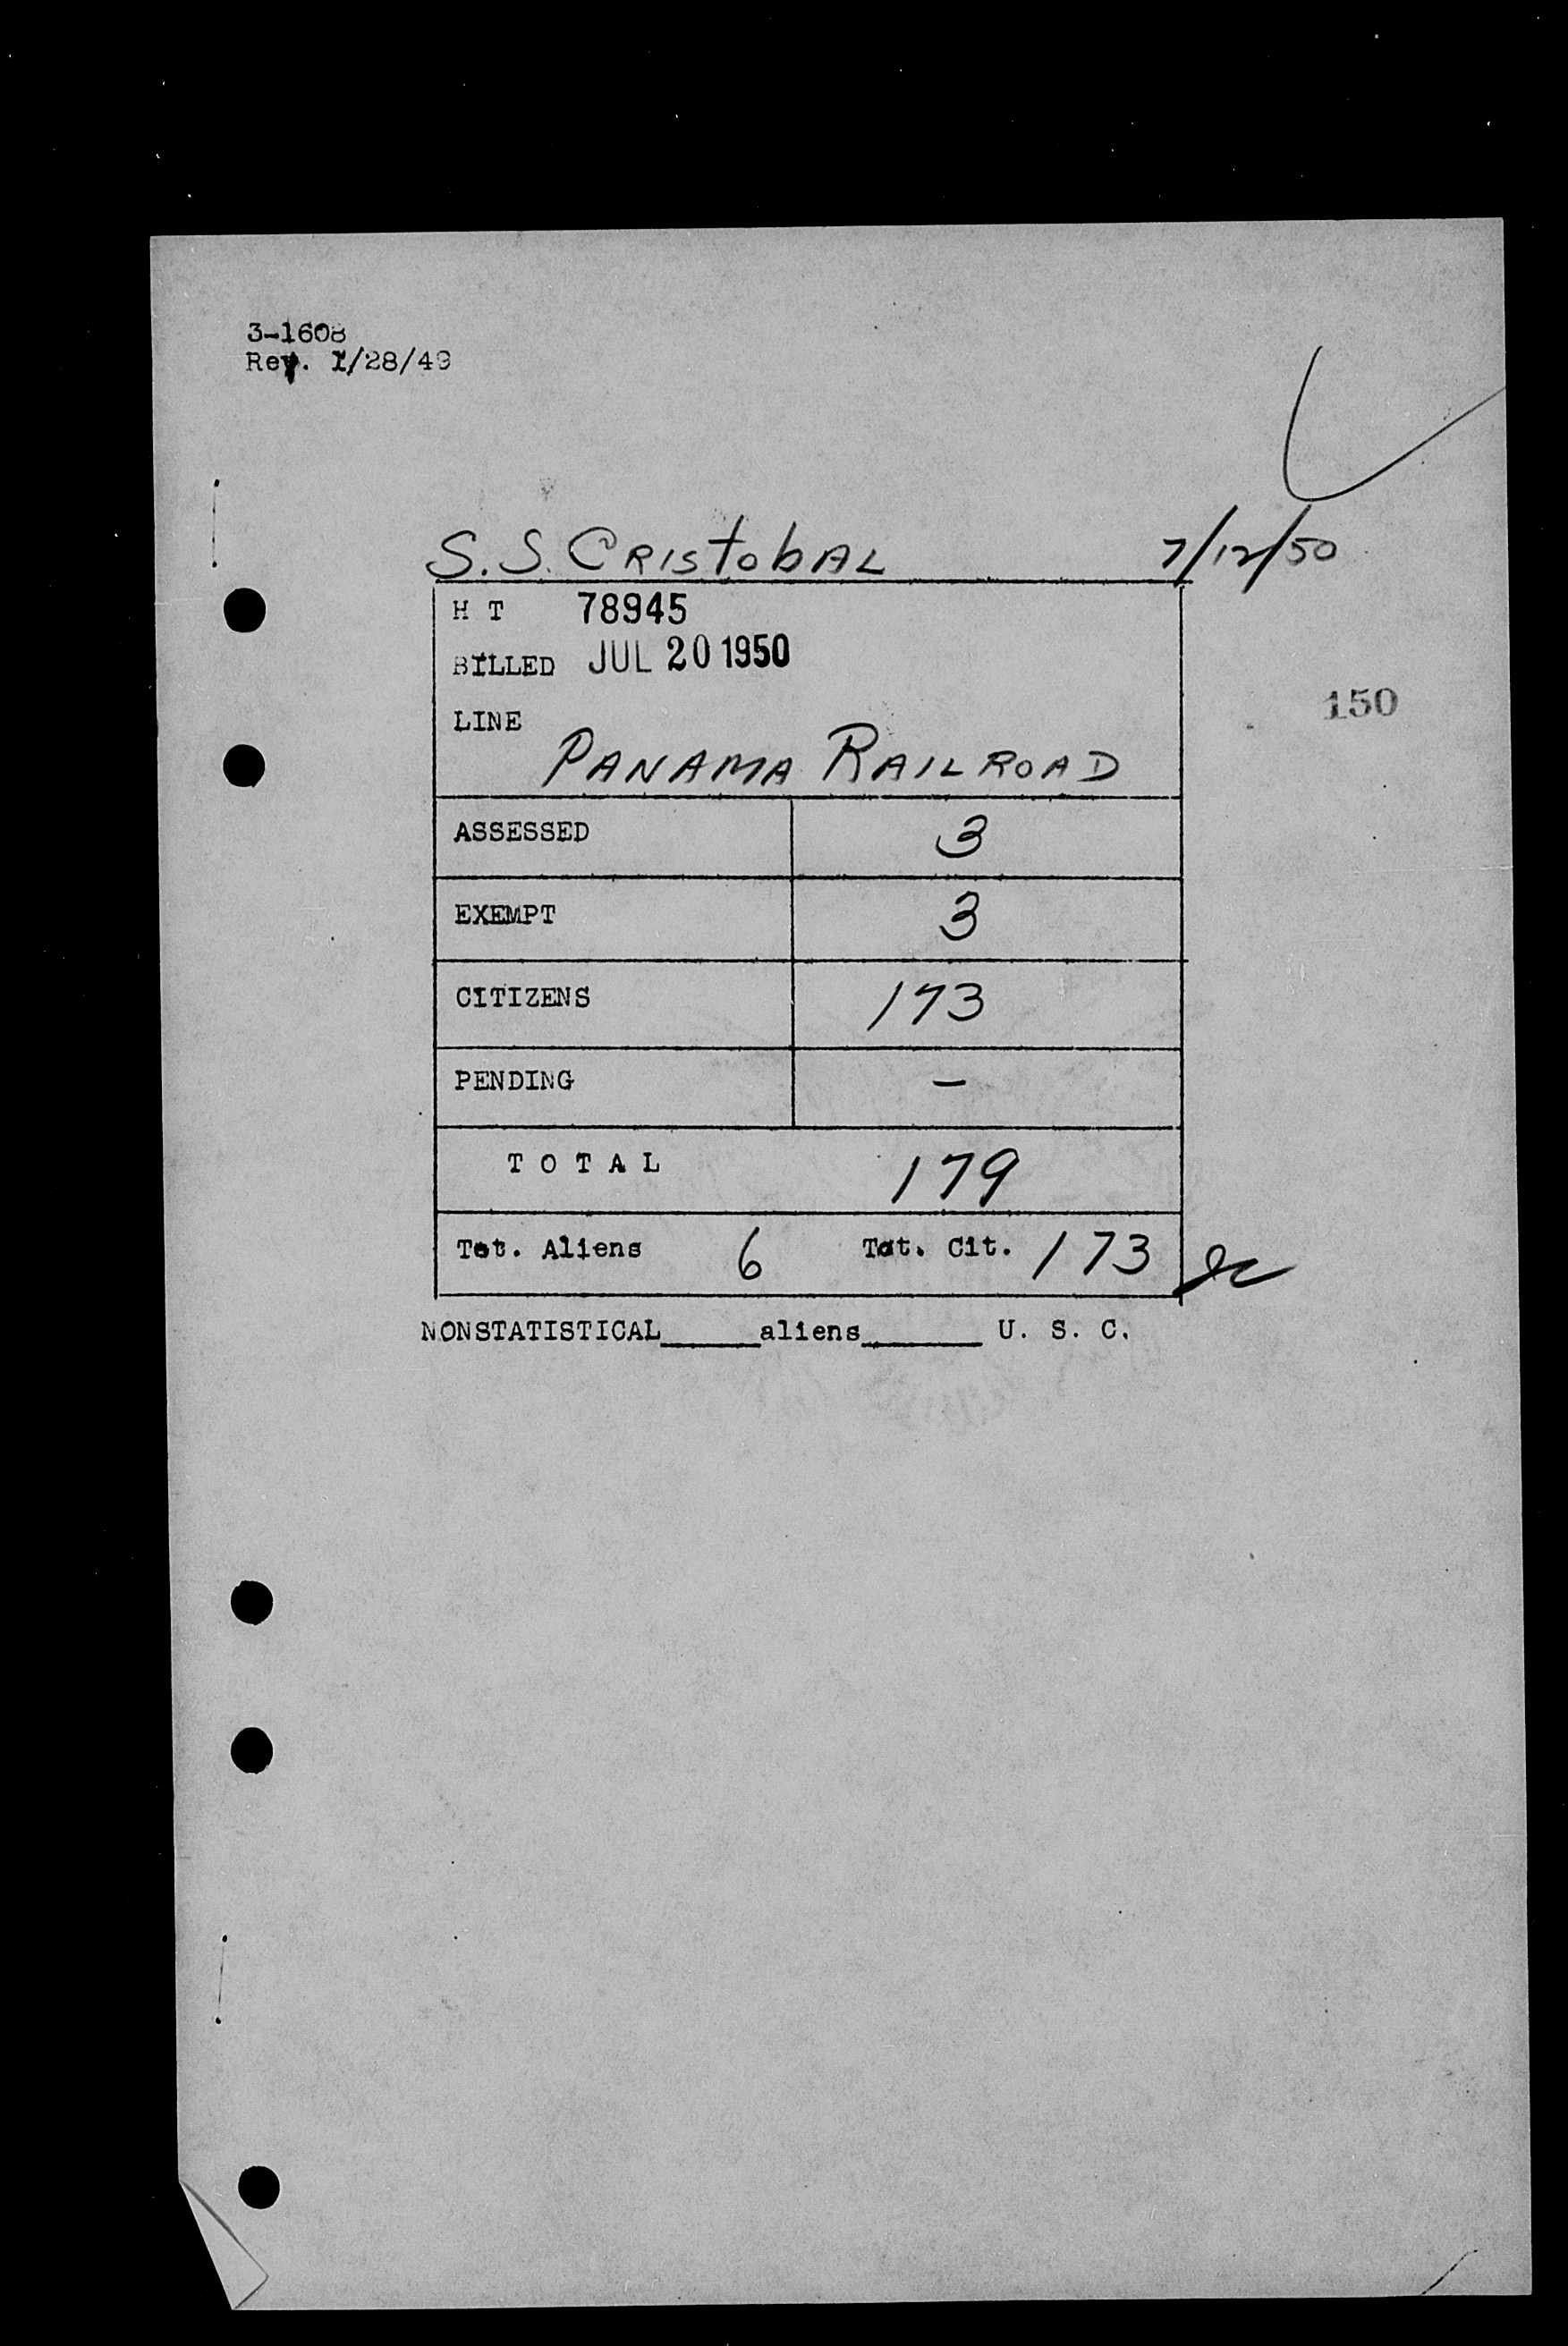 3-1608
Rev. 1/28/49
S.S. CRIStobAL 7/12/50
H T 78945
BILLED JUL 20 1950
150
LINE
PANAMA RAILROAD
ASSESSED 3
EXEMPT 3
CITIZENS 173
PENDING —
T O T A L 179
Tot. Aliens 6 Tot. Cit. 173
NONSTATISTICAL______aliens_______ U. S. C.